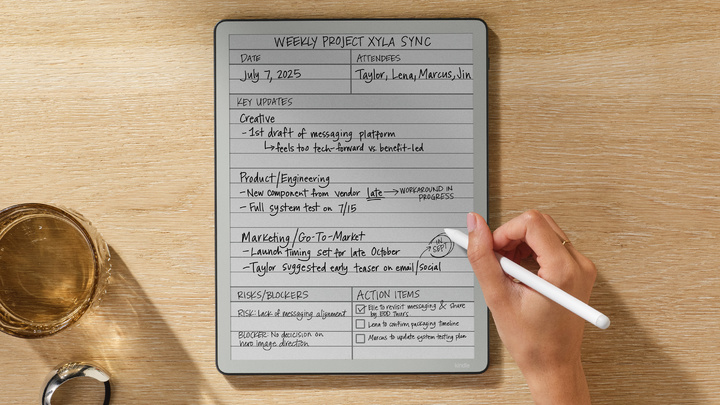 WEEKLY PROJECT XYLA SYNC
DATE
July 7, 2025
ATTENDEES
Taylor, Lena, Marcus, Jin
KEY UPDATES
Creative
- 1st draft of messaging platform
↳ feels too tech-forward vs benefit-led
Product/Engineering
- New component from vendor late → WORKAROUND IN
PROGRESS
- Full system test on 7/15
Marketing/Go-To-Market
- Launch timing set for late October
- Taylor suggested early teaser on email/social
IN
SEP?
RISKS/BLOCKERS
RISK: Lack of messaging alignment
BLOCKER: No decision on
hero image direction
ACTION ITEMS
Elle to revisit messaging & share
by EOD Thurs
Lena to confirm packaging timeline
Marcus to update system testing plan
kindle